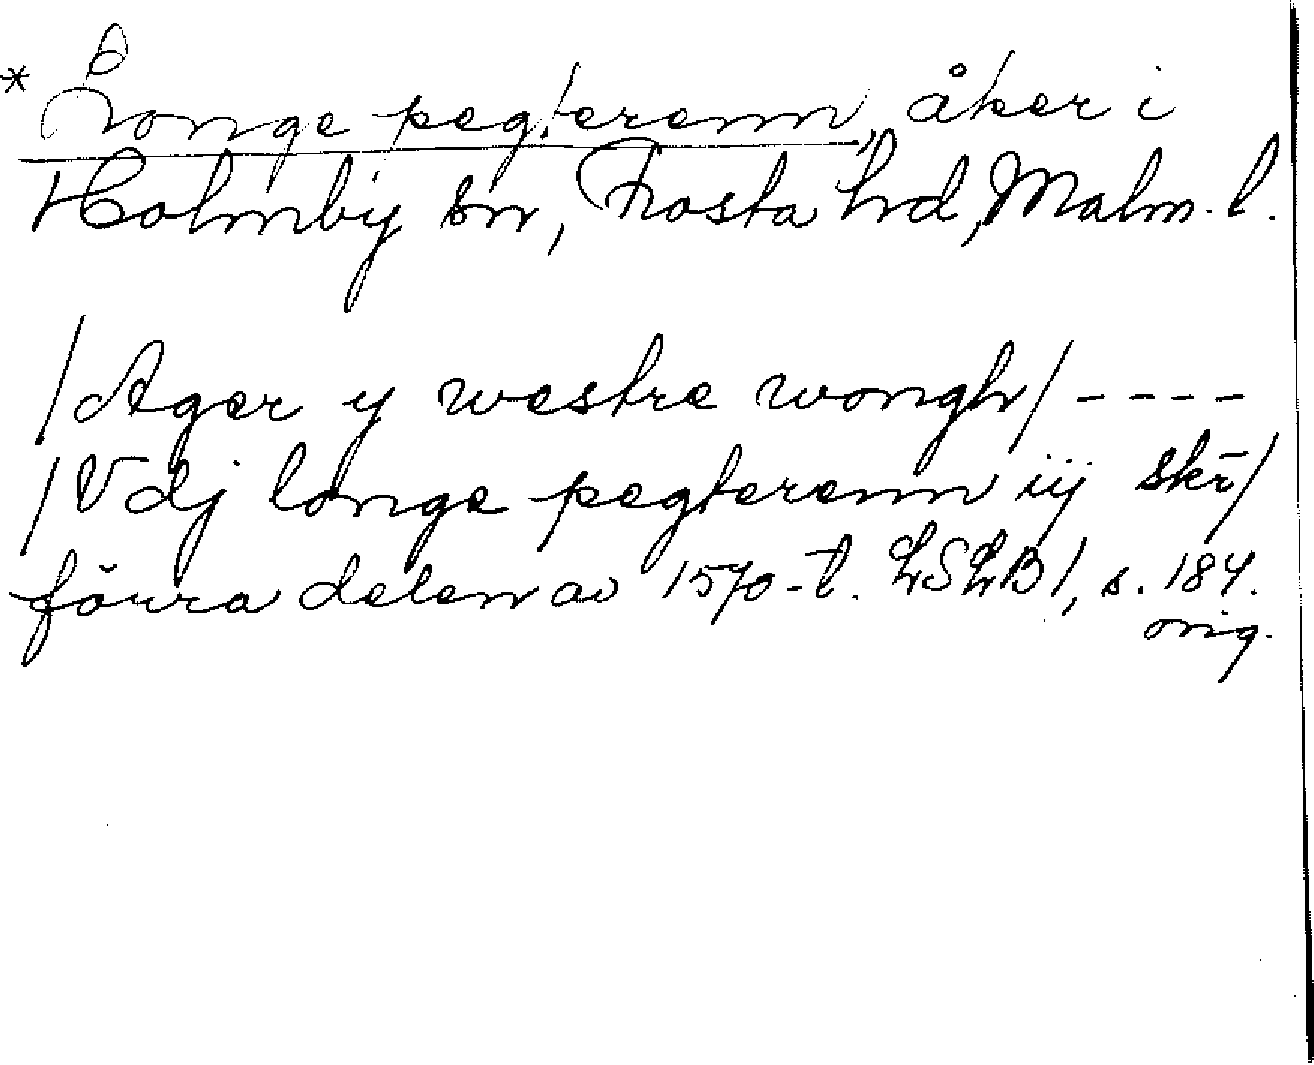 * Longe pegterenn, åker i
Holmby sn, Frosta hrd, Malm. l.
/Ager y westre wongh/ - - - -
/Vdj longe pegterenn iij skr̄/
förra delen av 1570-t. LSLB 1, s. 184.
orig.